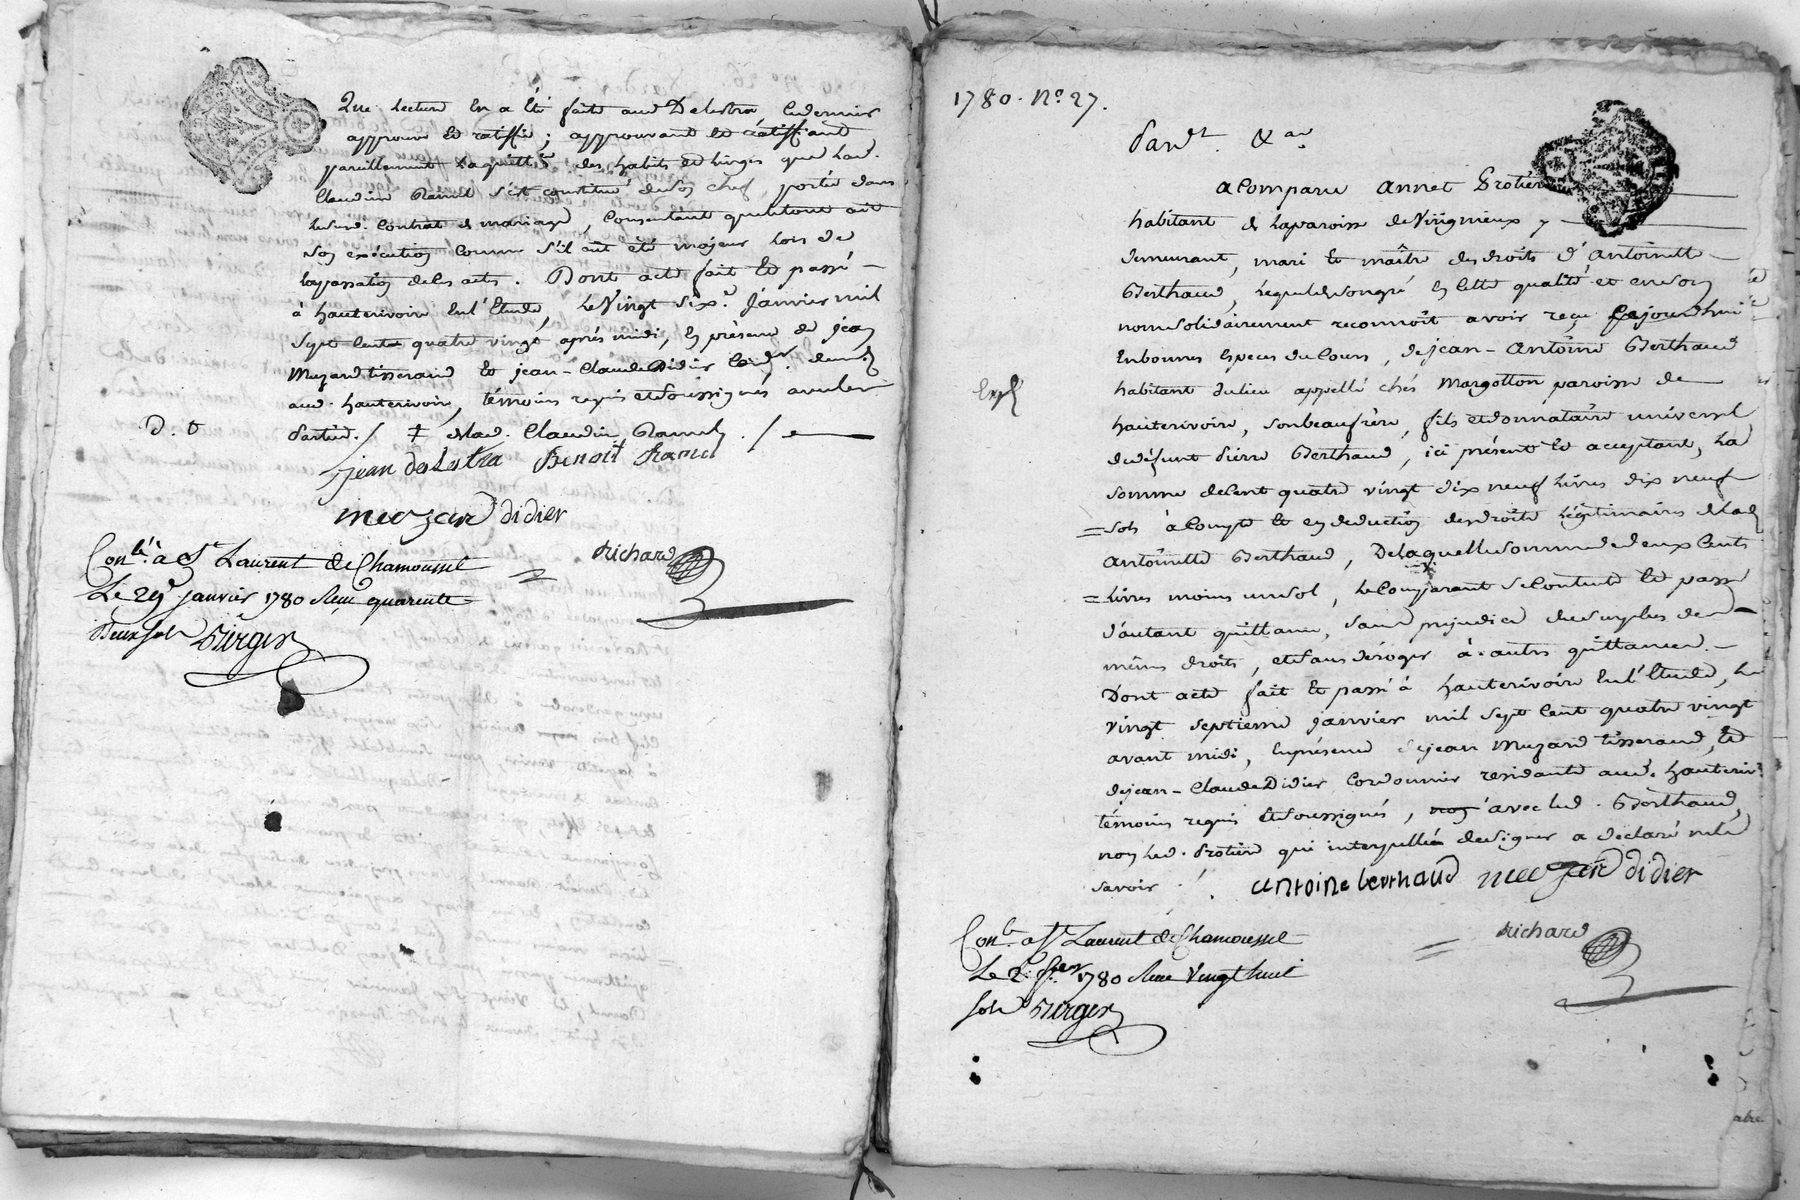 Que lecture en a été faite aud Delestra, ce dernier
approuve et ratiffie ; approuvant et ratiffiant
pareillement la quitt.ce des habits et linges que lad.
Claudine Ramel s'est constitué de son chef, portée dans
lesusd. Contrat de mariage, Consentant que le tout ait
son exécution comme s'il eût été majeur lors de
la passation de ces acts. Dont acte fait et passé
à hauterivoire en l'Etude, le Vingt six.e Janvier mil
sept Cent quatre vingt après midi, en présence de jean
Muzard tisserand et jean-Claude Didier Cord.r dem.t
aud. hauterivoire, témoins requis et soussignés avec les
D. t parties. / ‡ et lad. Claudine Ramel ./.
jean deLestra Benoit Ramel
muzard didier
richard
Con.lé à St Laurent de Chamousset
Le 29 janvier 1780 Reçu quarente
Deux sols Virger
1780. N.o 27.
Pard.t &.a
a Comparu annet Protiere
habitant de la paroisse de Virigneux y
demeurant, mari et maître des droits d'antoinette
Berthaud, lequel de son gré en cette qualité et en son
nom solidairement reconnoît avoir reçu cejourdhui
en bonnes Especes du Cours, de jean-Antoine Berthaud
habitant du lieu appellé chés Margotton paroisse de
Exp.é
hauterivoire, son beaufrère, fils et donnataire universel
de défunt Pierre Berthaud, ici présent et acceptant, la
somme de Cent quatre vingt dix neuf livres dix neuf
=sols à Compte et en déduction des droits légitimaires de lad
Antoinette Berthaud, De laquelle somme de deux Cents
=livres moins un sol, le Comparant se Contente et passe
d'autant quittance, sans préjudice du surplus de
mêmes droits, et sans déroger à autres quittances.
Dont acte fait et passé à hauterivoire en l'Etude, le
vingt septieme janvier mil sept Cent quatre vingt
avant midi, en présence de jean Muzard tisserand, et
de jean-Claude Didier Cordonnier residants aud. hauteriv.e
témoins requis et soussignés, non avec led. Berthaud,
non led. Protiere qui interpellé de signer a déclaré ne le
savoir ./.
antoine berthaud muzard didier
richard
Con.lé à St Laurent de Chamousset
Le 2. fev.er 1780 Reçu Vingt huit
sols Virger